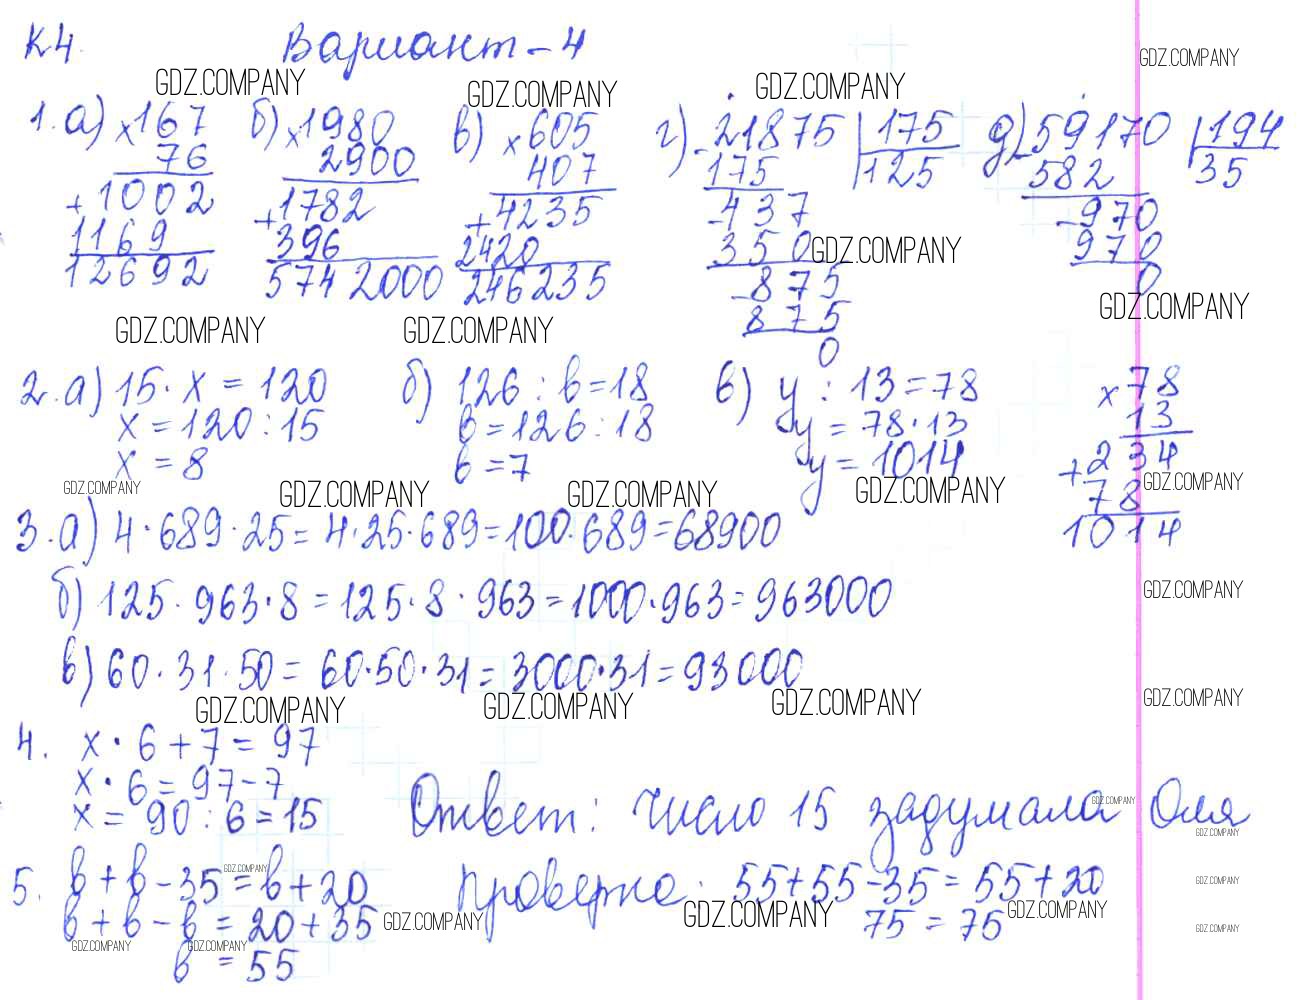 К4. Вариант - 4
GDZ.COMPANY GDZ.COMPANY GDZ.COMPANY GDZ.COMPANY
1. а) ×167 б) ×1980 в) ×605 г) -21875 |175 д) -59170 |194
76 2900 407 175 125 582 35
+1002 +1782 +4235 -437 -970
1169 396 2420 350 970
GDZ.COMPANY
12692 5742000 246235 -875 0
GDZ.COMPANY
875
GDZ.COMPANY GDZ.COMPANY
0
2. а) 15 · x = 120 б) 126 : в = 18 в) y : 13 = 78 ×78
x = 120 : 15 в = 126 : 18 y = 78 · 13 13
x = 8 в = 7 y = 1014 +234
GDZ.COMPANY GDZ.COMPANY GDZ.COMPANY GDZ.COMPANY GDZ.COMPANY
78
1014
3. а) 4 · 689 · 25 = 4 · 25 · 689 = 100 · 689 = 68900
б) 125 · 963 · 8 = 125 · 8 · 963 = 1000 · 963 = 963000
GDZ.COMPANY
в) 60 · 31 · 50 = 60 · 50 · 31 = 3000 · 31 = 93000
GDZ.COMPANY GDZ.COMPANY GDZ.COMPANY GDZ.COMPANY
4. x · 6 + 7 = 97
x · 6 = 97 - 7
x = 90 : 6 = 15 Ответ: число 15 задумала Оля
GDZ.COMPANY GDZ.COMPANY
5. в + в - 35 = в + 20 Проверка: 55 + 55 - 35 = 55 + 20
GDZ.COMPANY GDZ.COMPANY
в + в - в = 20 + 35 75 = 75
GDZ.COMPANY GDZ.COMPANY GDZ.COMPANY GDZ.COMPANY
GDZ.COMPANY GDZ.COMPANY
в = 55